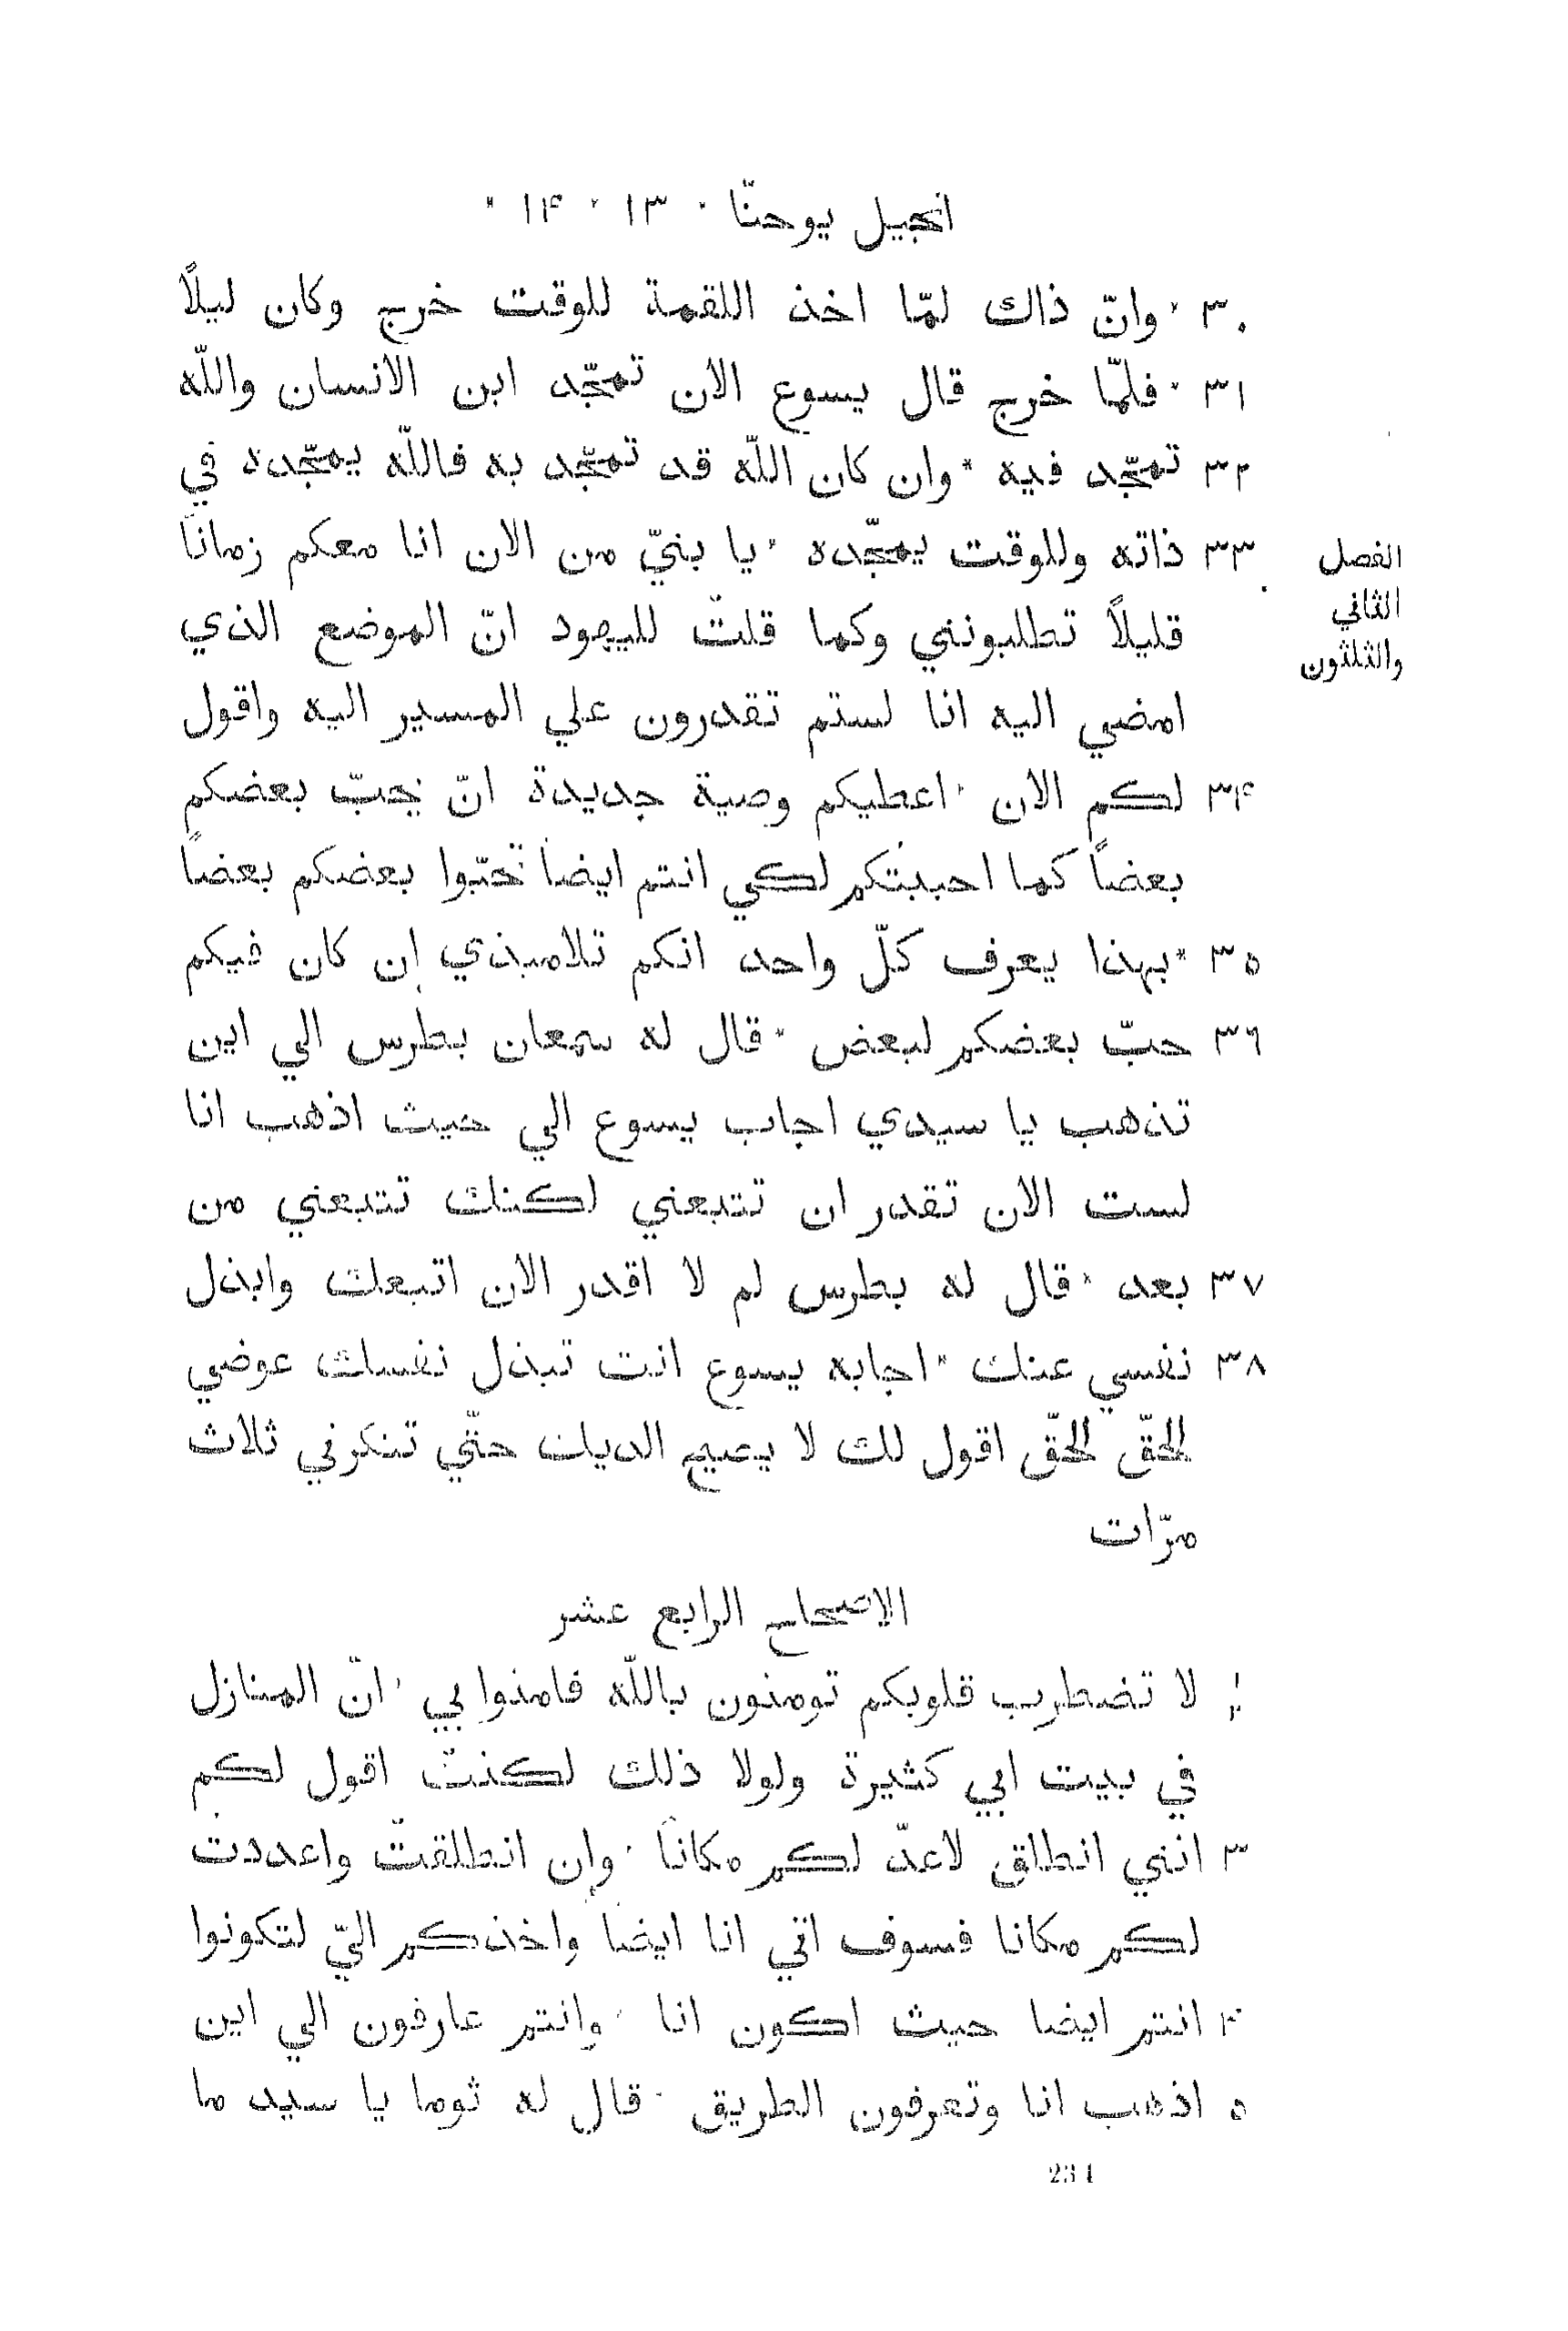 انجيل يوحنّا ٠ ١٣ ٠ ١۴ *
٣٠ * وانّ ذاك لمّا اخذ اللقمة للوقت خرج وكان ليلاً
٣١ * فلمّا خرج قال يسوع الان تمجّد ابن الانسان واللّه
٣٢ تمجّد فيه * وان كان اللّه قد تمجّد به فاللّه يمجّده في
٣٣ ذاته وللوقت يمجّده * يا بنيّ من الان انا معكم زمانًا
الفصل
الثاني
والثلثون
قليلاً تطلبونني وكما قلتُ لليهود انّ الموضع الذي
امضي اليه انا لستم تقدرون علي المسير اليه واقول
٣۴ لكم الان * اعطيكم وصية جديدة انّ يحبّ بعضكم
بعضاً كما احببتُكم لكي انتم ايضاً تحبّوا بعضكم بعضاً
٣٥ * بهذا يعرف كلّ واحد انكم تلاميذي إن كان فيكم
٣٦ حبّ بعضكم لبعض * قال له سمعان بطرس الي اين
تذهب يا سيدي اجاب يسوع الي حيث اذهب انا
لست الان تقدر ان تتبعني لكنك تتبعني من
٣٧ بعد * قال له بطرس لم لا اقدر الان اتبعك وابذل
٣٨ نفسي عنك * اجابه يسوع انت تبذل نفسك عوضي
الحقّ الحقّ اقول لك لا يصيح الديك حتّي تنكرني ثلاث
مرّات
الاصحاح الرابع عشر
١ ٢ لا تضطرب قلوبكم تومنون باللّه فامنوا بي * انّ المنازل
في بيت ابي كثيرة ولولا ذلك لكنتُ اقول لكم
٣ انني انطلق لاعدّ لكم مكاناً * وإن انطلقتُ واعددت
لكم مكانا فسوف اتي انا ايضاً واخذكم اليّ لتكونوا
۴ انتم ايضا حيث اكون انا * وانتم عارفون الي اين
٥ اذهب انا وتعرفون الطريق * قال له ثوما يا سيد ما
234